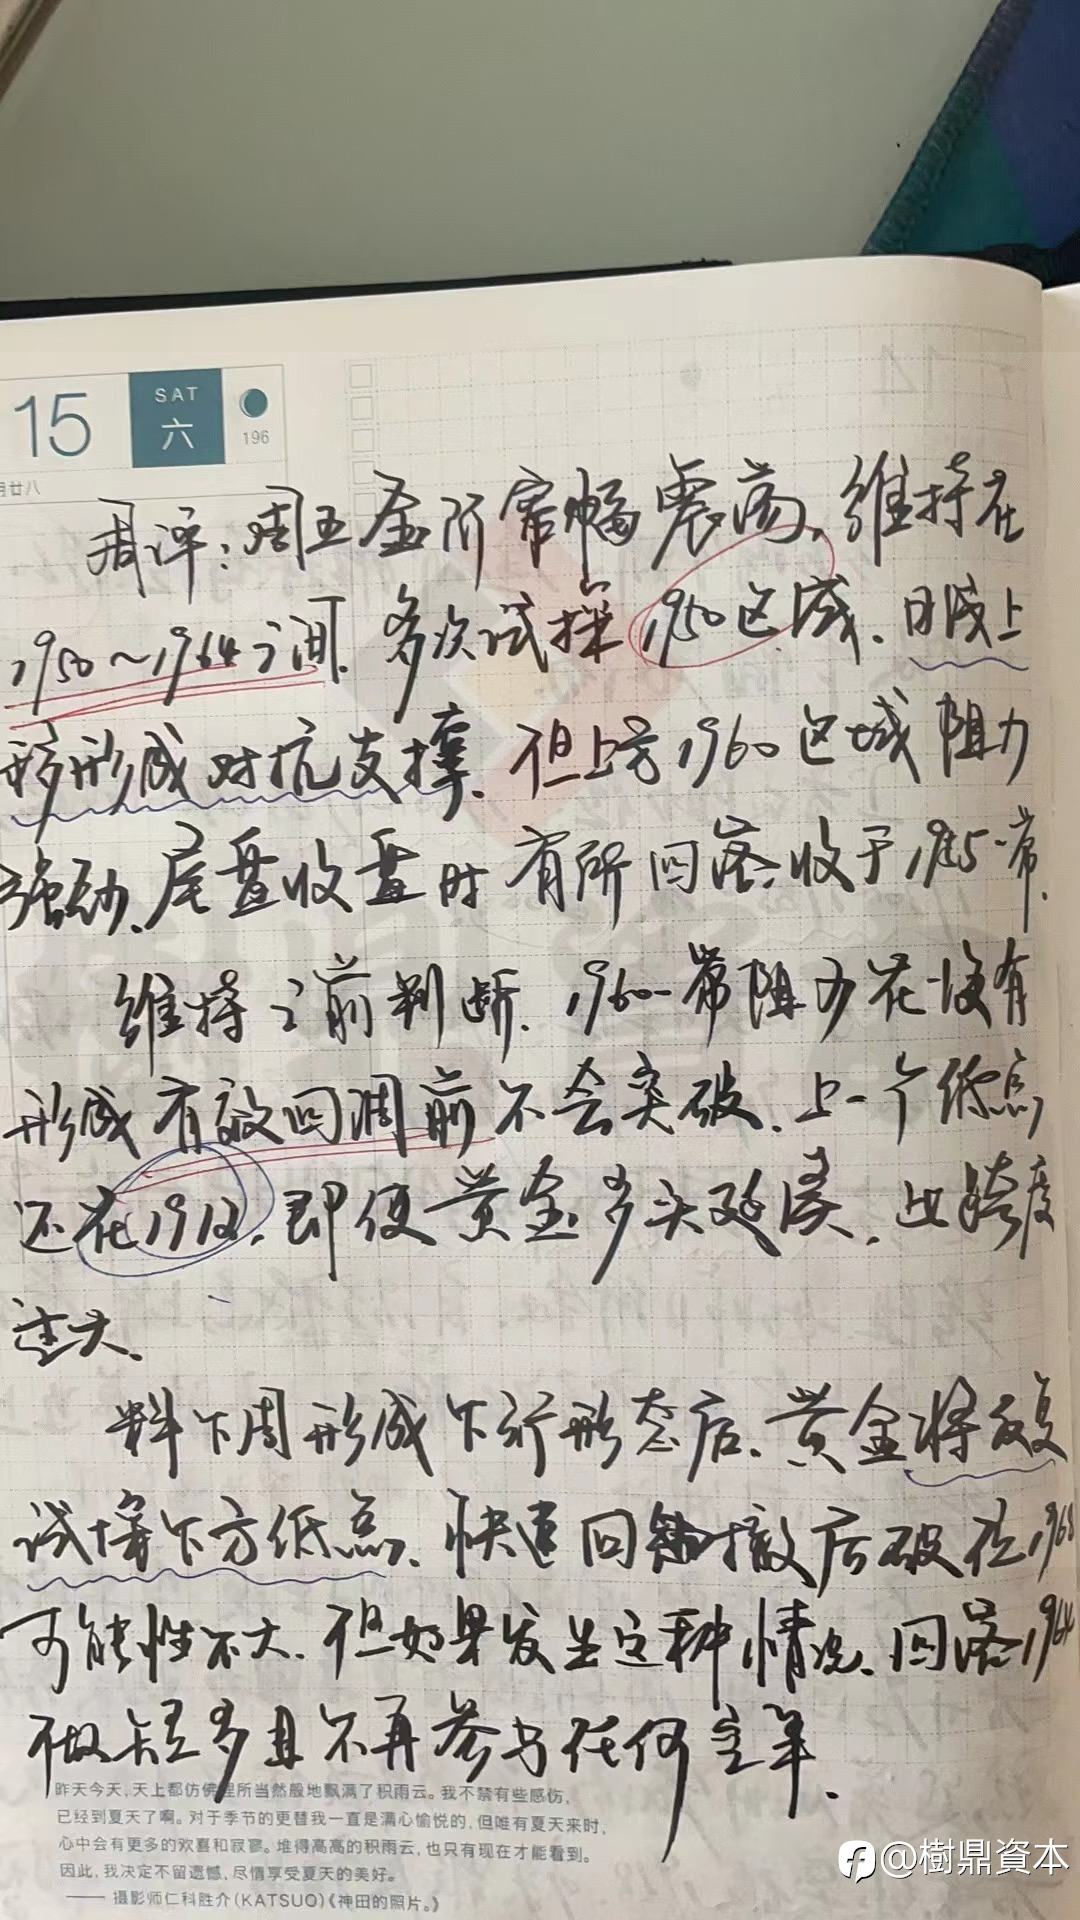 15
SAT
六
196
月廿八
周评:周五金价窄幅震荡,维持在
1950~1964之间.多次试探1950区域.日线上
移形成对抗支撑.但上方1960区域阻力
强劲.尾盘收盘时有所回落.收于1955一带.
维持之前判断.1960一带阻力在没有
形成有效回调前不会突破.上一个低点
还在1912.即使黄金多头延续.此跨度
过大.
料下周形成下行形态后.黄金将反复
试探下方低点.快速回撤后破位1968
可能性不大.但如果发生这种情况.回落1964
做短多且不再参与任何空单.
昨天今天,天上都仿佛理所当然般地飘满了积雨云。我不禁有些感伤,
已经到夏天了啊。对于季节的更替我一直是满心愉悦的,但唯有夏天来时,
心中会有更多的欢喜和寂寥。堆得高高的积雨云,也只有现在才能看到。
因此,我决定不留遗憾,尽情享受夏天的美好。
—— 摄影师仁科胜介(KATSUO)《神田的照片。》
@樹鼎資本